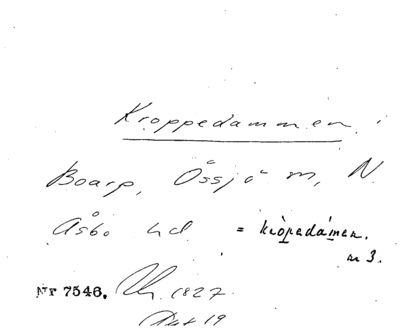 Kroppedammen i
Boarp, Össjö sn, N.
Åsbo hd = kròpedámen.
n 3.
Nr 7546. 1827.
19